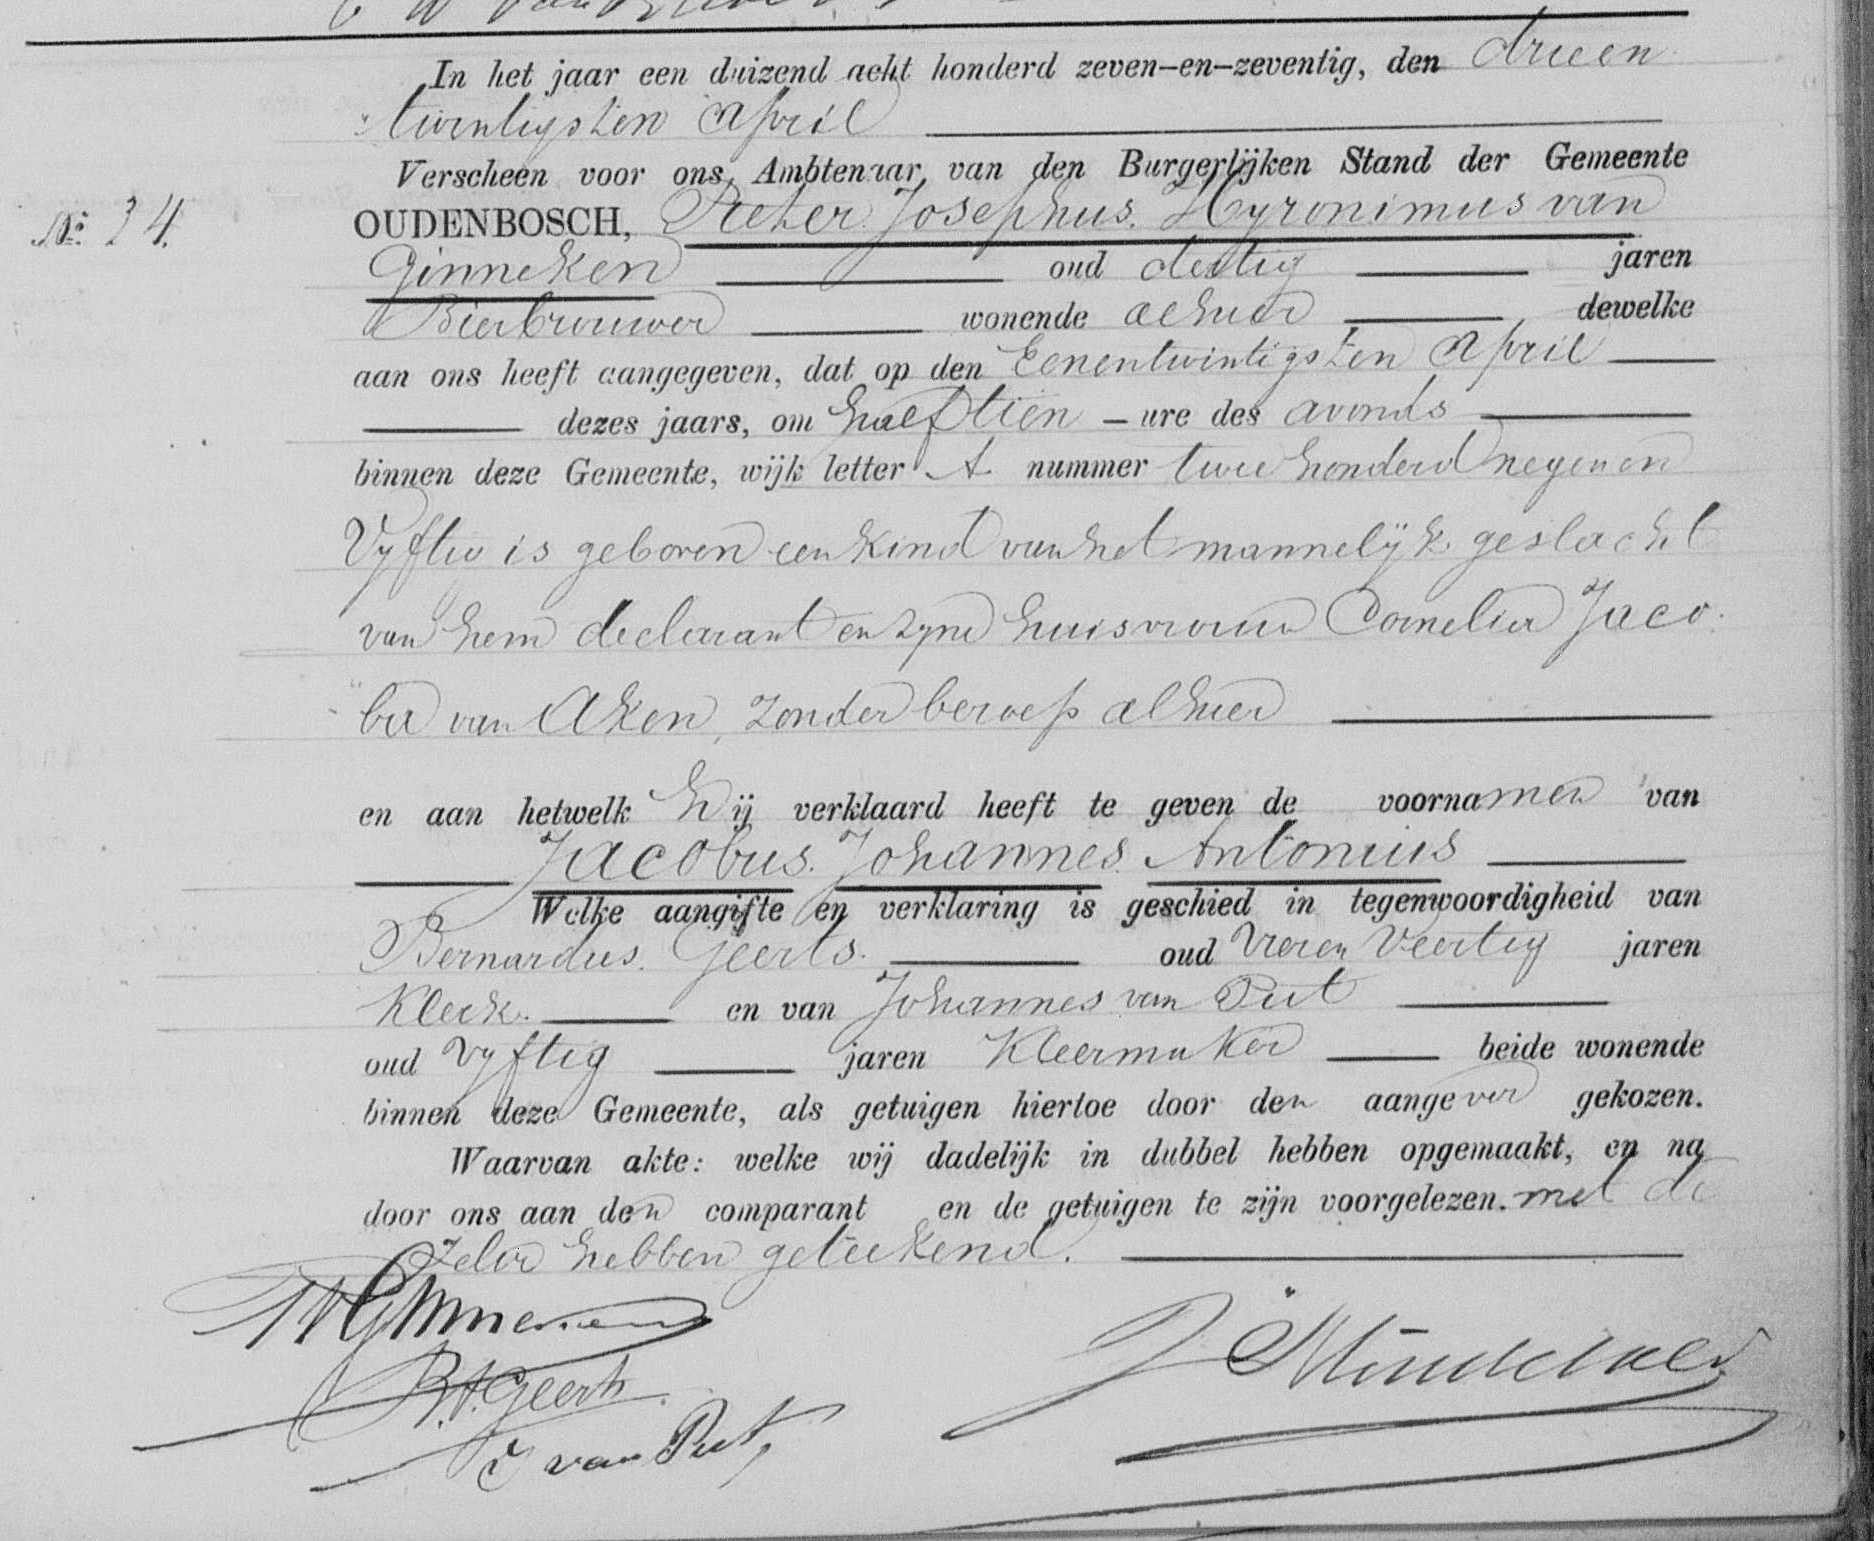 In het jaar een duizend acht honderd zeven-en-zeventig, den drieen
twintigsten April
Verscheen voor ons, Ambtenaar van den Burgerlijken Stand der Gemeente
No. 34.
OUDENBOSCH, Pieter Josephus Hyronimus van
Ginneken oud dertig jaren
Bierbrouwer wonende alhier dewelke
aan ons heeft aangegeven, dat op den Eenentwintigsten April
dezes jaars, om half tien ure des avonds
binnen deze Gemeente, wijk letter A nummer twee honderd negen en
Vyftig is geboren een kind van het mannelijk geslacht
van hem declarant en zyne huisvrouw Cornelia Jaco
ba van Aken, zonder beroep alhier
en aan hetwelk hij verklaard heeft te geven de voornamen van
Jacobus. Johannes. Antonius
Welke aangifte en verklaring is geschied in tegenwoordigheid van
Bernardus. Geerts. oud vieren Veertig jaren
Klerk. en van Johannes van Put
oud vyftig jaren Kleermaker beide wonende
binnen deze Gemeente, als getuigen hiertoe door den aangever gekozen.
Waarvan akte: welke wij dadelijk in dubbel hebben opgemaakt, en na
door ons aan den comparant en de getuigen te zijn voorgelezen. met de
zelve hebben geteekend.
Ginneken
B. A. Geerts
J van Put